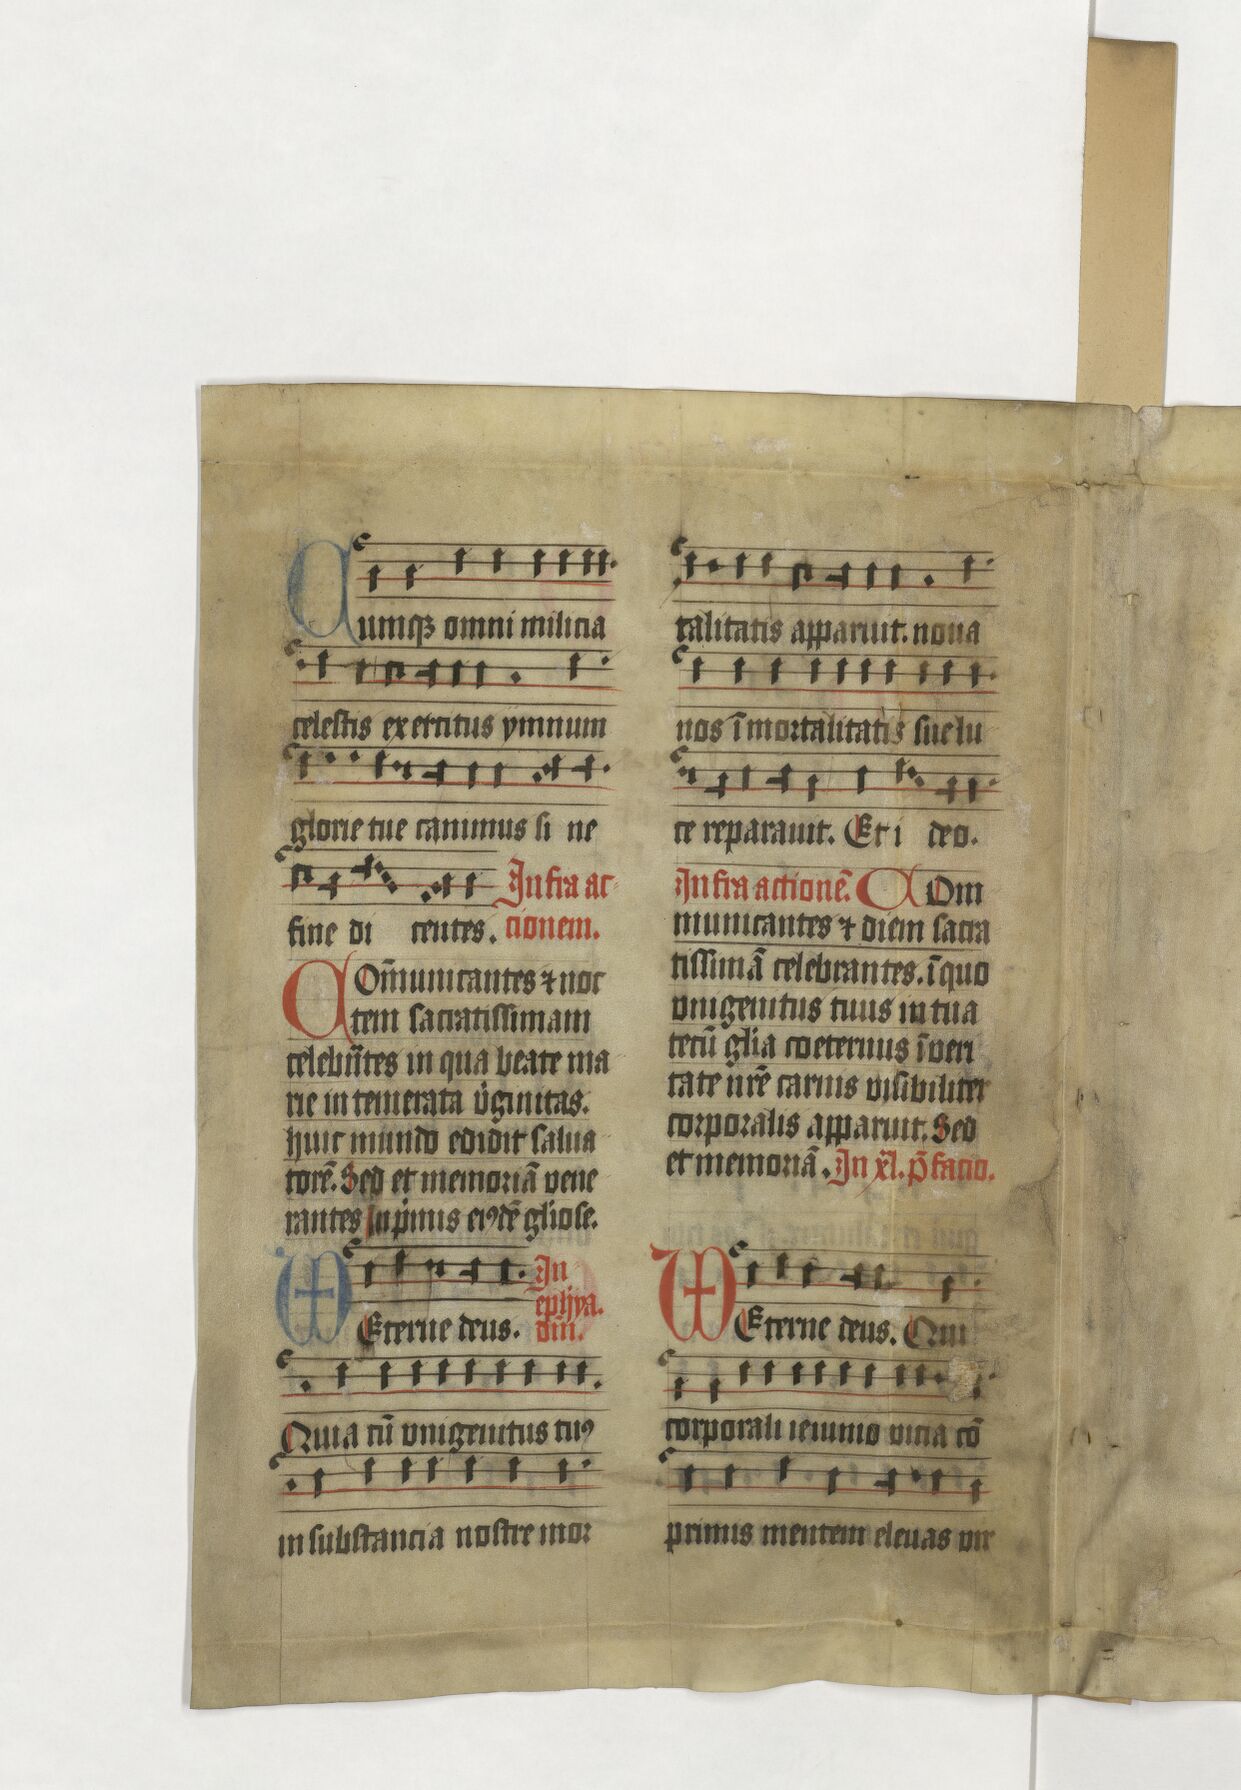 Cumq₃ omni milicia
celestis exercitus ymnum
glorie tue canimus si ne
fine di centes. Infra ac-
cionem.
COm̄unicantes ⁊ noc
tem sacratissimam
celebrn̄tes in qua beate ma
rie intemerata v̓ginitas.
huic mundo edidit salua
torē. Sed et memoriā vene
rantes In p̓mis ei⁹dē gl̓iose.
VEterne deus. In
ephya.
dn̄i.
Quia cū vnigenitus tu⁹
in substancia nostre mor
talitatis apparuit. noua
nos ī mortalitatis sue lu
ce reparauit. Et i deo.
Infra actionē. COm
municantes ⁊ diem sacra
tissimā celebrantes. ī quo
vnigenitus tuus in tua
tecū gl̄ia coeternus ī veri
tate nr̄e carnis visibiliter
corporalis apparuit. Sed
et memoriā. In xl̓. p̄facio.
VEterne deus. Qui
corporali ieiunio vicia cō
primis mentem eleuas vir